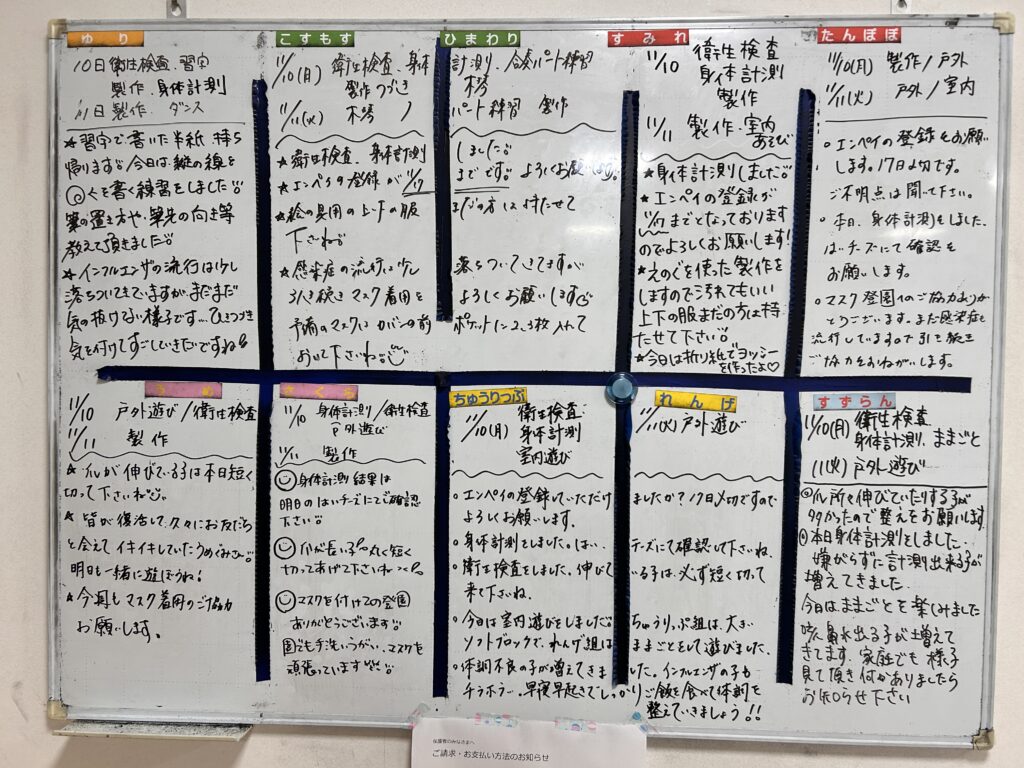 ゆり
10日 衛生検査、習字
製作、身体計測
11日 製作 ダンス
★習字で書いた半紙 持ち
帰ります。今日は縦の線を
くを書く練習をしました。
筆の置き方や、筆先の向き等
教えて頂きました。
★インフルエンザの流行は少し
落ちついてきていますが、まだまだ
気の抜けない様子です…ひきつづき
気を付けてすごしていきたいですね!
こすもす
11/10(月) 衛生検査、身体
製作つづき
11/11(火) 木琴
★衛生検査、身体計測
★エンペイの登録が11/17
★絵の具用の上下の服
下さいね
★感染症の流行は少し
引き続きマスク着用を
予備のマスクはカバンの前
おいて下さいね。
ひまわり
計測、合奏パート練習
木琴
パート練習 製作
しました。
までです。よろしくお願いします。
まだの方は持たせて
落ちついてきてますが
よろしくお願いします
ポケットに2、3枚入れて
すみれ
11/10 衛生検査
身体計測
製作
11/11 製作・室内
あそび
★身体計測しました。
★エンペイの登録が
11/17までとなっております
のでよろしくお願いします!
★えのぐを使った製作を
しますので汚れてもいい
上下の服まだの方は持
たせて下さい。
★今日は折り紙でヨッシー
を作ったよ♡
たんぽぽ
11/10(月) 製作/戸外
11/11(火) 戸外/室内
○エンペイの登録をお願い
します。17日〆切です。
ご不明点は聞いて下さい。
○本日、身体計測をしました。
はいチーズにて確認を
お願いします。
○マスク登園へのご協力ありが
とうございます。まだ感染症も
流行していますので引き続き
ご協力をおねがいします。
うめ
11/10 戸外遊び/衛生検査
11/11 製作
★爪が伸びている子は本日短く
切って下さいね。
★皆が復活して久々にお友だち
と会えてイキイキしていたうめぐみさん
明日も一緒に遊ぼうね!
★今週もマスク着用のご協力
お願いします。
さくら
11/10 身体計測/衛生検査
戸外遊び
11/11 製作
身体計測結果は
明日のはいチーズにてご確認
下さい
爪が長い子 丸く短く
切ってあげて下さいね
マスクを付けての登園
ありがとうございます。
園でも手洗いうがい、マスクを
頑張っています
ちゅうりっぷ
11/10(月) 衛生検査
身体計測
室内遊び
○エンペイの登録していただけ
よろしくお願いします。
○身体計測をしました。はい
○衛生検査をしました。伸びて
来て下さいね。
○今日は室内遊びをしました。
ソフトブロックで、れんげ組は
○体調不良の子が増えてきま
チラホラ…早寝早起きでしっかり
れんげ
11/11(火) 戸外遊び
ましたか?17日〆切ですので
チーズにて確認して下さいね。
いる子は、必ず短く切って
ちゅうりっぷ組は、大きい
ままごとをして遊びました。
した。インフルエンザの子も
ご飯を食べて体調を
整えていきましょう!!
すずらん
11/10(月) 衛生検査
身体計測、ままごと
11(火) 戸外遊び
爪所々伸びていたりする子が
多かったので整えをお願いします
本日身体計測をしました。
嫌がらずに計測出来る子が
増えてきました
今日はままごとを楽しみました
咳、鼻水出る子が増えて
きてます。家庭でも様子
見て頂き何かありましたら
お知らせ下さい
保護者のみなさまへ
ご請求・お支払い方法のお知らせ